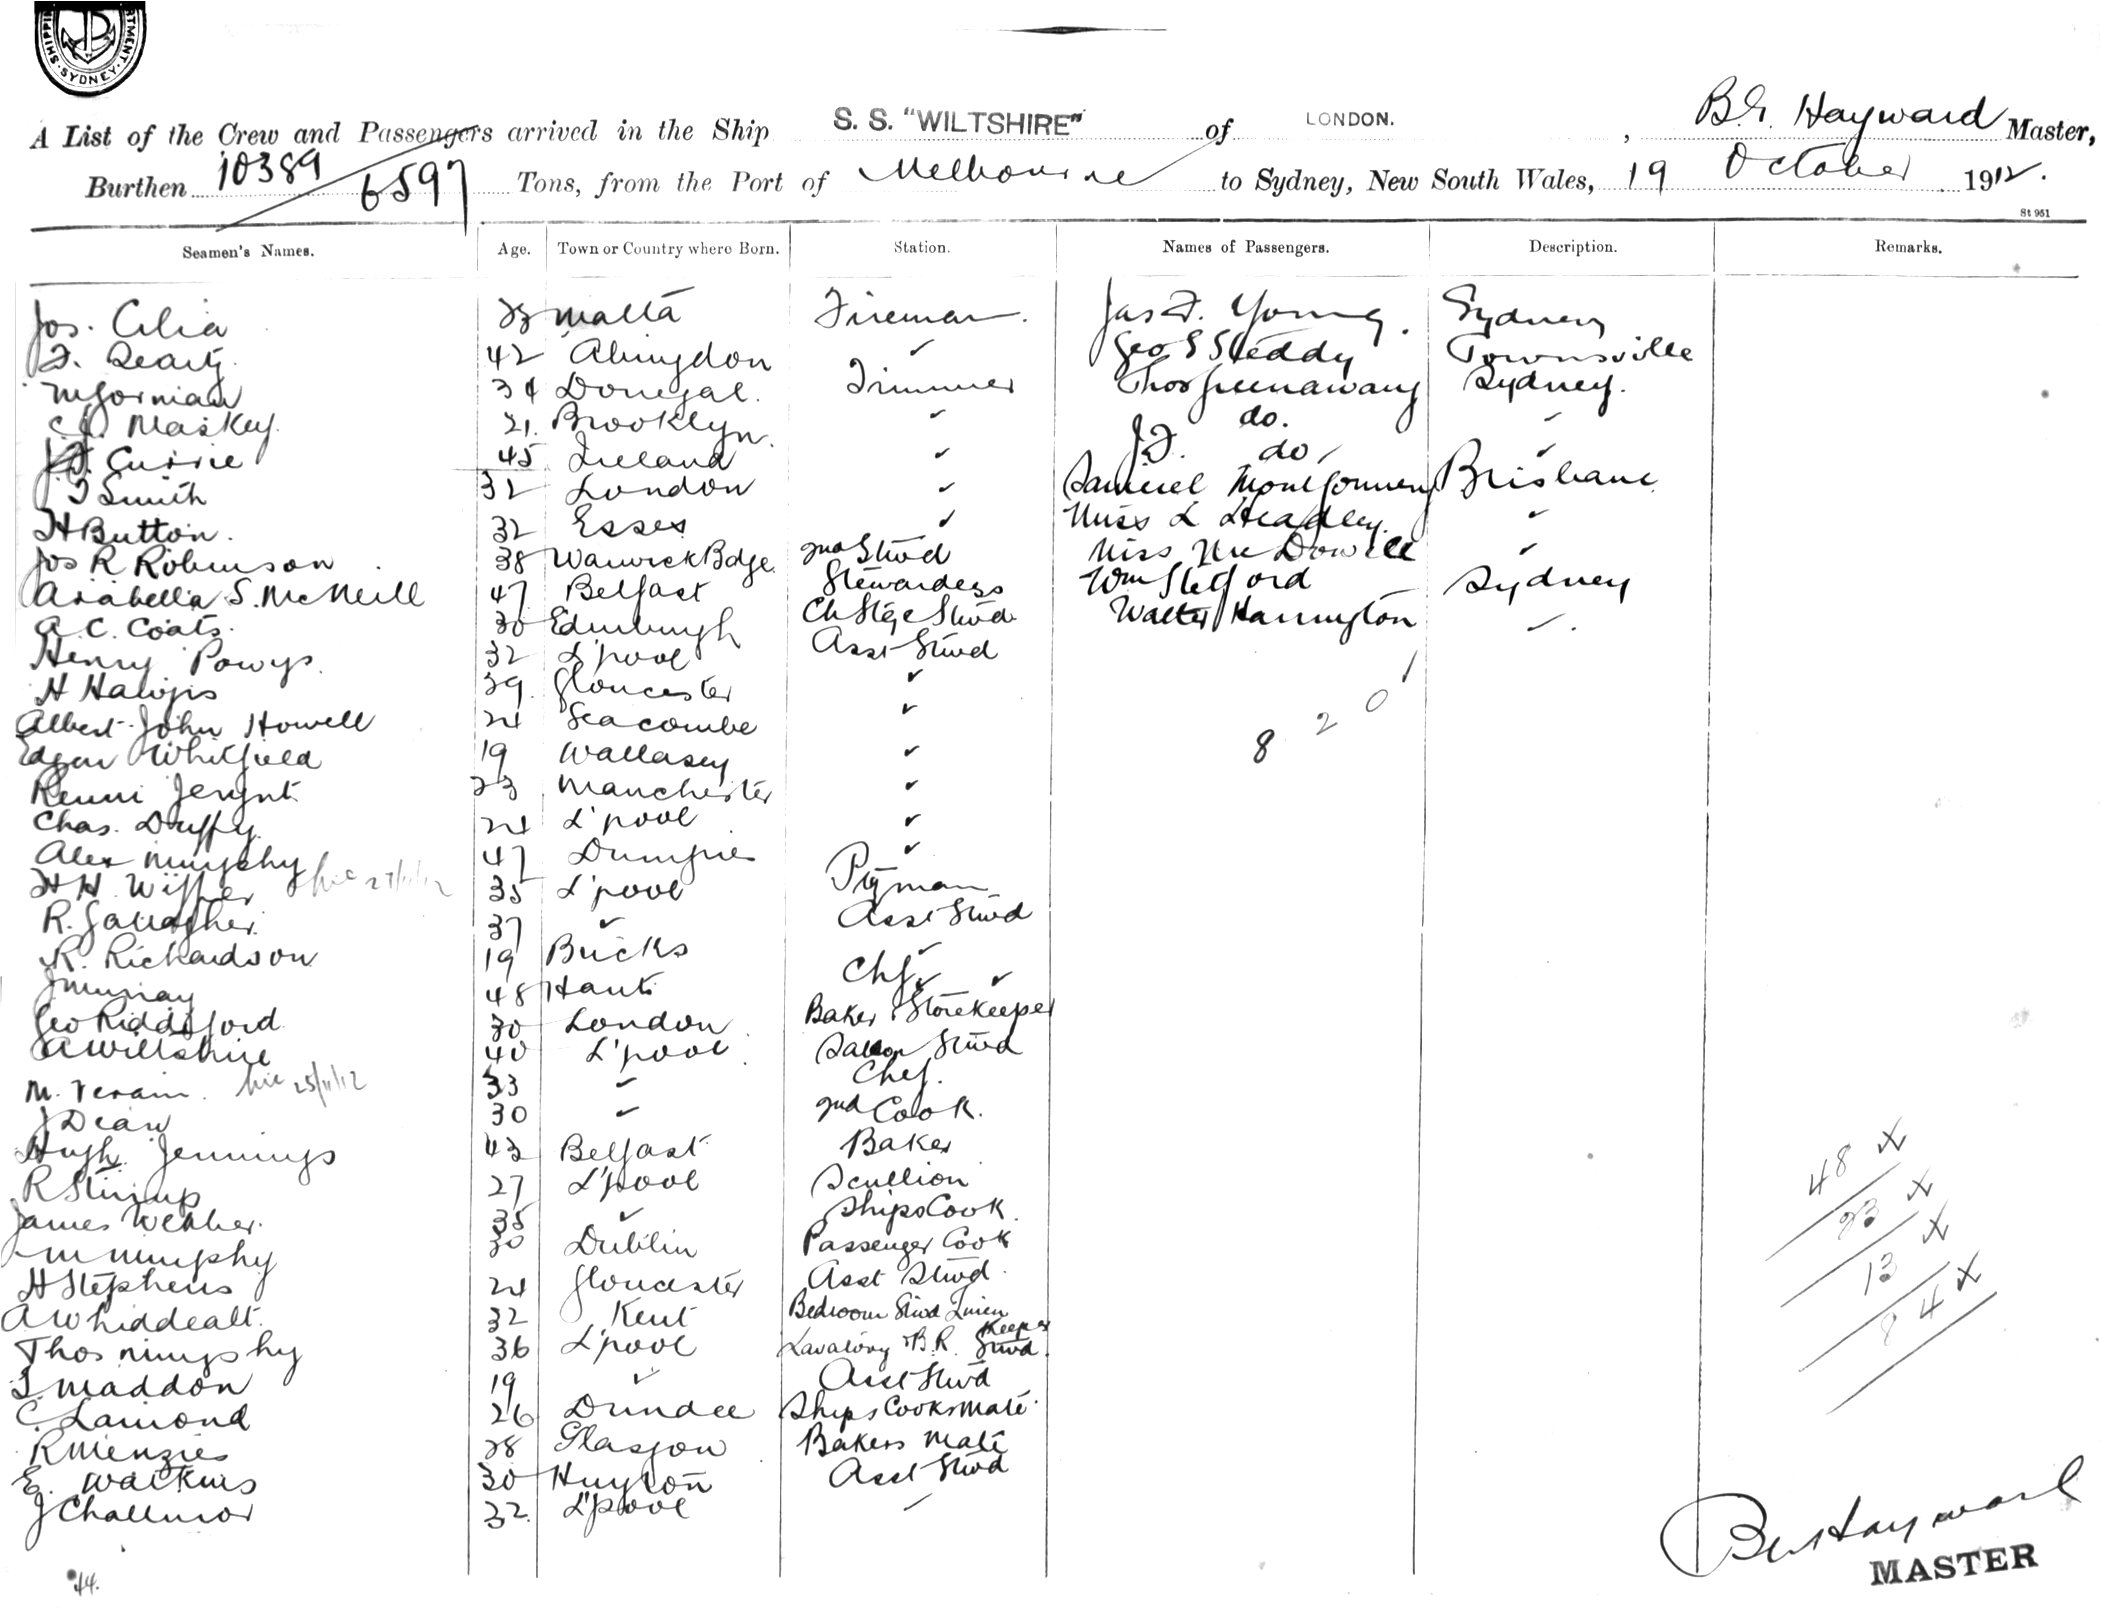 SHIPPING DEPARTMENT · SYDNEY ·
A List of the Crew and Passengers arrived in the Ship S. S. "WILTSHIRE" of LONDON. , B.G. Hayward Master,
Burthen 10389 / 6597 Tons, from the Port of Melbourne to Sydney, New South Wales, 19 October 1912.
St 951
Seamen's Names. Age. Town or Country where Born. Station. Names of Passengers. Description. Remarks.
Jos. Cilia 23 Malta Fireman. Jas F. Young. Sydney
F. 42 Abingdon ✓ Geo S Steddy Townsville
M Gorman 34 Donegal. Trimmer Thos Greenaway Sydney.
C. J. Maskey. 21. Brooklyn. ✓ do. ✓
J. F. Currie 45 Ireland ✓ J F. do, ✓
T Smith 32 London ✓ Samuel Montgomery Brisbane
H Button. 32 Essex ✓ Miss L Headley. ✓
Jos R Robinson 38 Warwick Bdge. 2nd Stwd Miss Mc Dowell ✓
Arabella S. McNeill 47 Belfast Stewardess Wm Sletford Sydney
A. C. Coats. 30 Edinburgh Ch Stge Stwd Walter Harrington ✓
Henry Powys. 32 L'pool Asst Stwd
H 29. Gloucester ✓
Albert John Howell 24 Seacombe ✓ 8 2 0 1
Edgar Whitfield 19 Wallasey ✓
23 Manchester ✓
Chas. Duffy. 24 L'pool ✓
Alex Murphy 47 Dumfries ✓
H H. 27/11/12 35 L'pool Ptyman
R. Gallagher. 37 ✓ Asst Stwd
R. Richardson 19 Bucks ✓
J Murray 48 Hants Chf ✓ ✓
Geo Riddiford 30 London Baker & Storekeeper
A Wiltshire 40 L'pool Saloon Stwd
M. 25/11/12 33 ✓ Chef.
J Dean 30 ✓ 2nd Cook.
Hugh Jennings 43 Belfast Baker
R Stirrup 27 L'pool Scullion
James Webber. 35 ✓ Ships Cook.
M Murphy 30 Dublin Passenger Cook
H Stephens 24 Gloucester Asst Stwd.
A Whiddealt. 32 Kent Bedroom Stwd Linen Keeper
Thos Murphy 36 L'pool Lavatory & B.R. Stwd.
T. Maddon 19 ✓ Asst Stwd
C. Lamond 26 Dundee Ships Cooks Mate.
R Menzies 28 Glasgow Bakers Mate
E. Watkins 30 Huyton Asst Stwd
J Challinor 32. L'pool ✓
48 X
23 X
13 X
84 X
B G Hayward
MASTER
44.